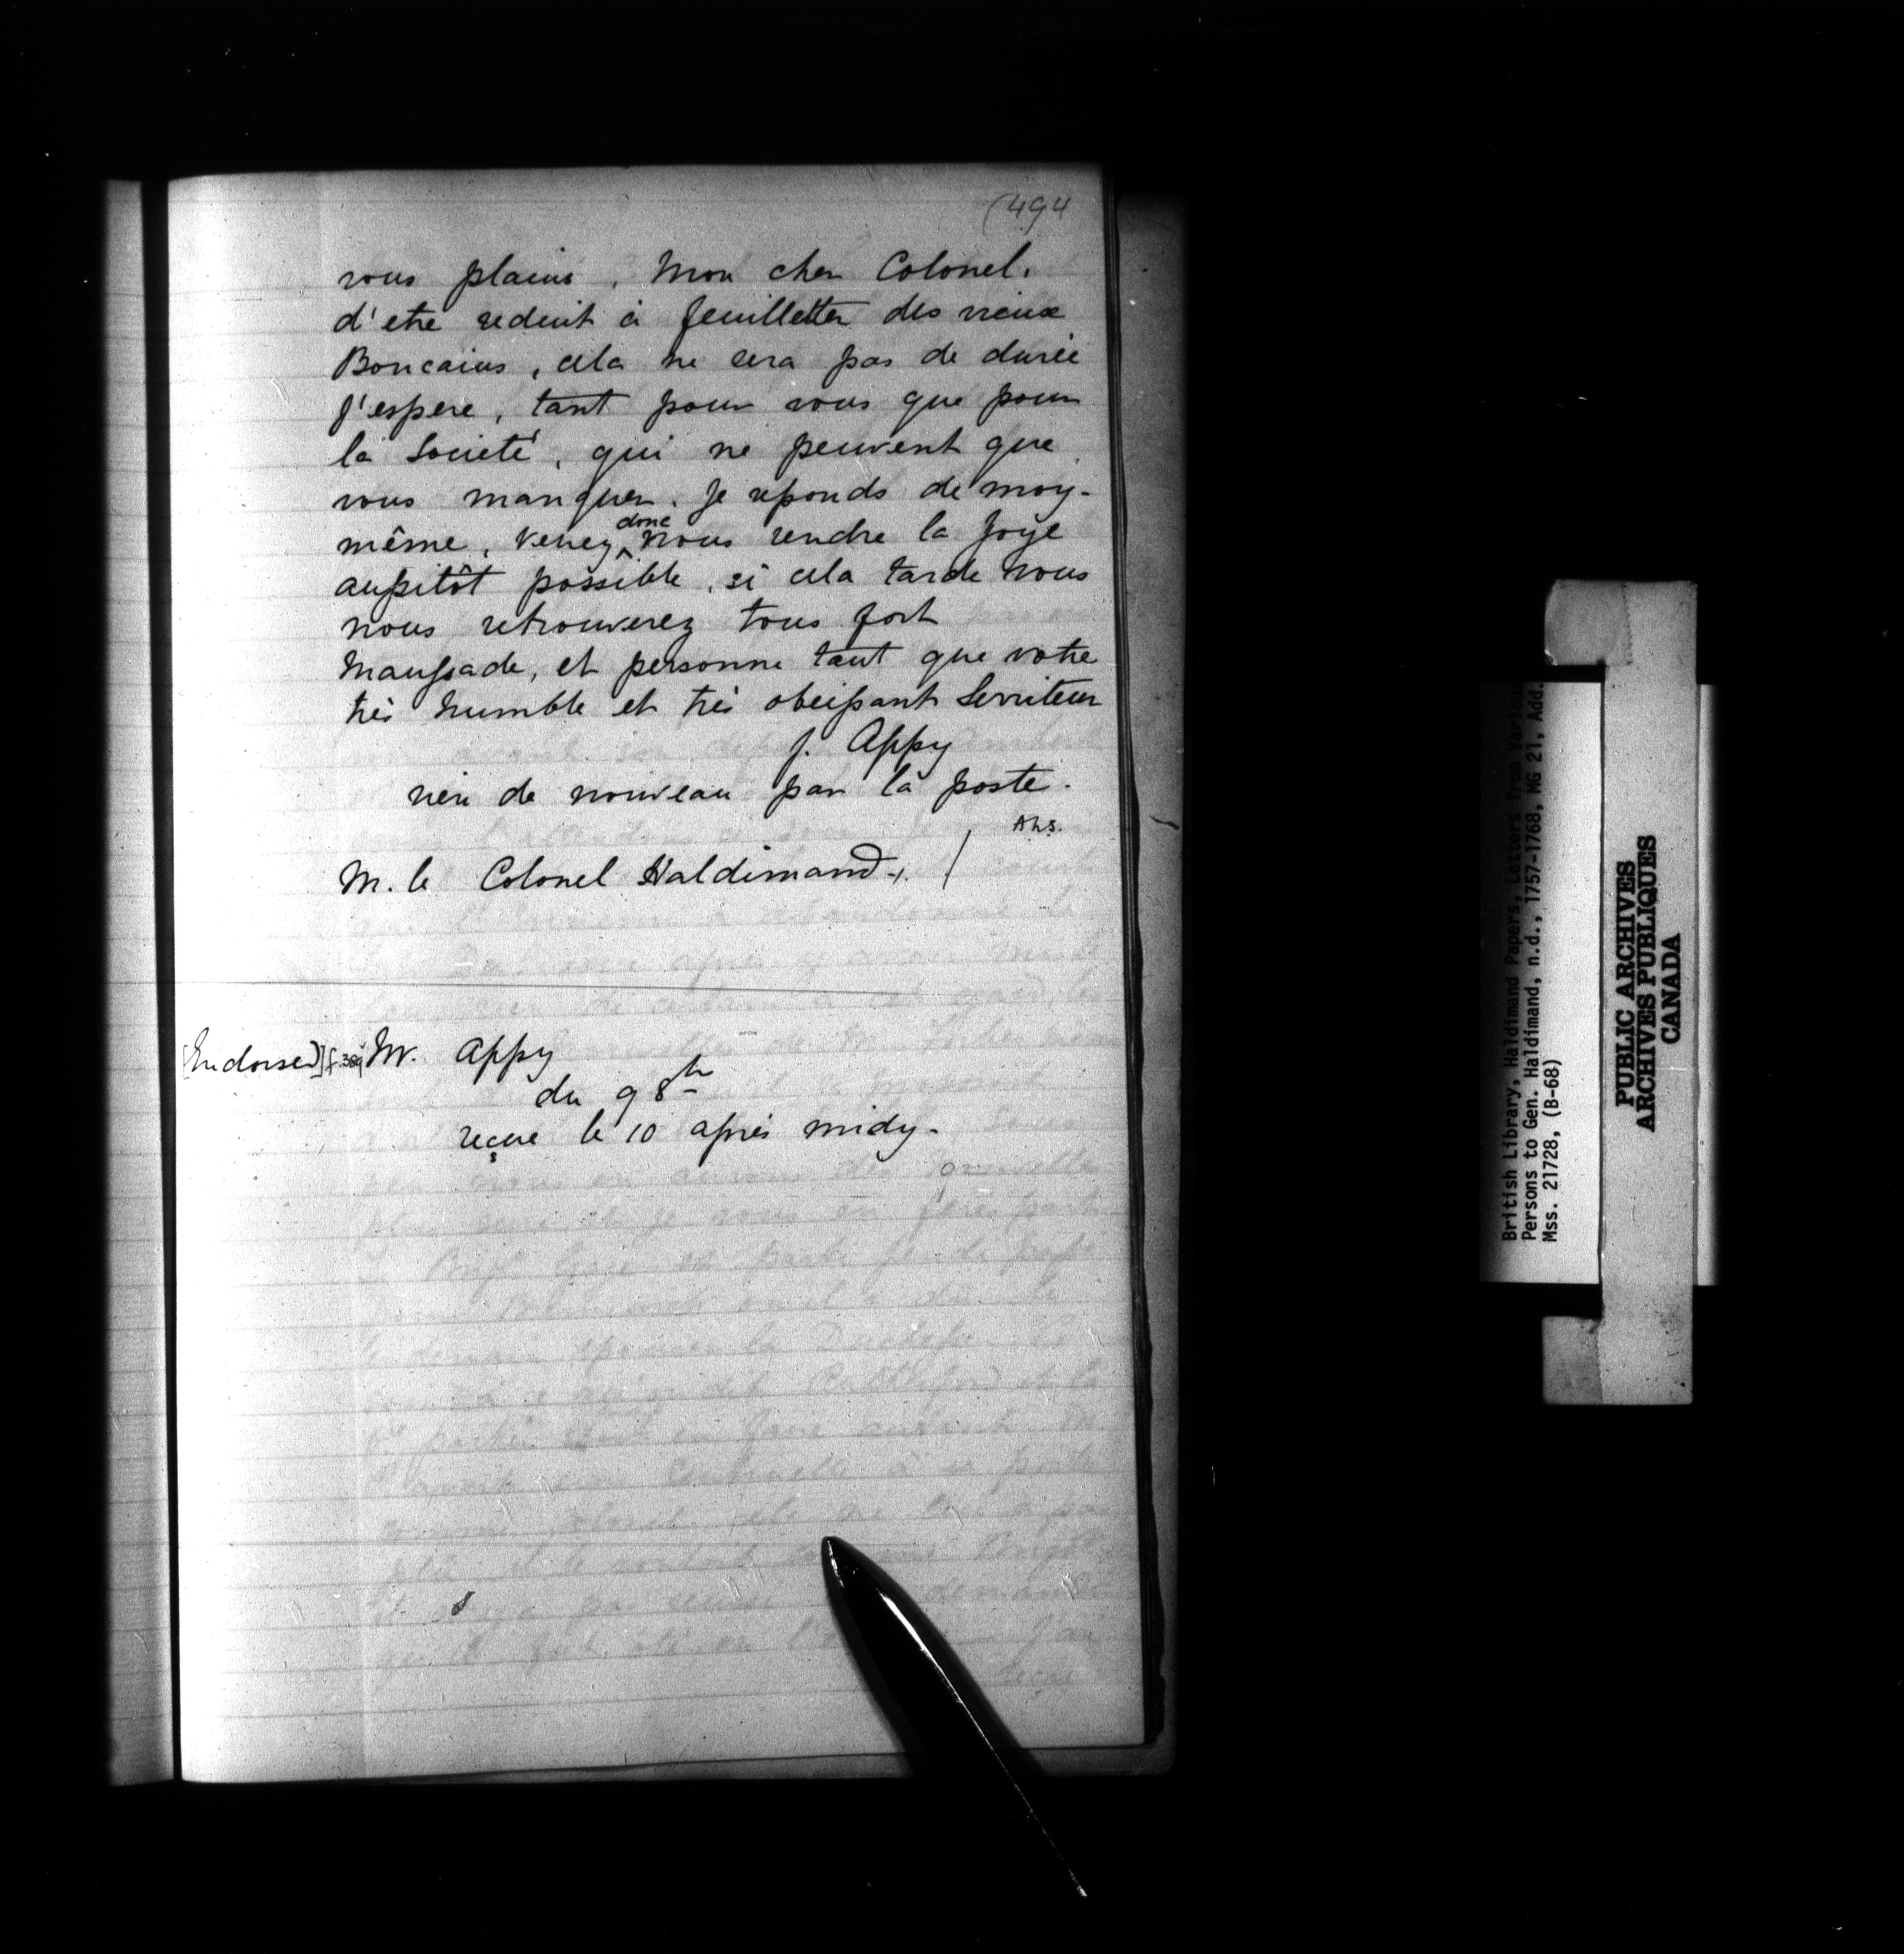 (494
vous plains, Mon cher Colonel,
d'etre reduit à feuilletter des vieux
Boucains, cela ne sera pas de durée
j'espere, tant pour vous que pour
la Societé, qui ne peuvent que
vous manquer. Je reponds de moy-
même, Venez donc nous rendre la Joye
aussitôt possible, si cela tarde vous
nous retrouverez tous fort
Maussade, et personne tant que votre
très humble et très obeissant Serviteur
J. Appy
rien de nouveau par la poste.
M. le Colonel Haldimand. / A.L.S.
[Endorsed] f. 389 Mr. Appy
du 9 8br
reçue le 10 après midy.
British Library, Haldimand Papers, Letters from Various
Persons to Gen. Haldimand, n.d., 1757-1768, MG 21, Add.
Mss. 21728, (B-68)
PUBLIC ARCHIVES
ARCHIVES PUBLIQUES
CANADA